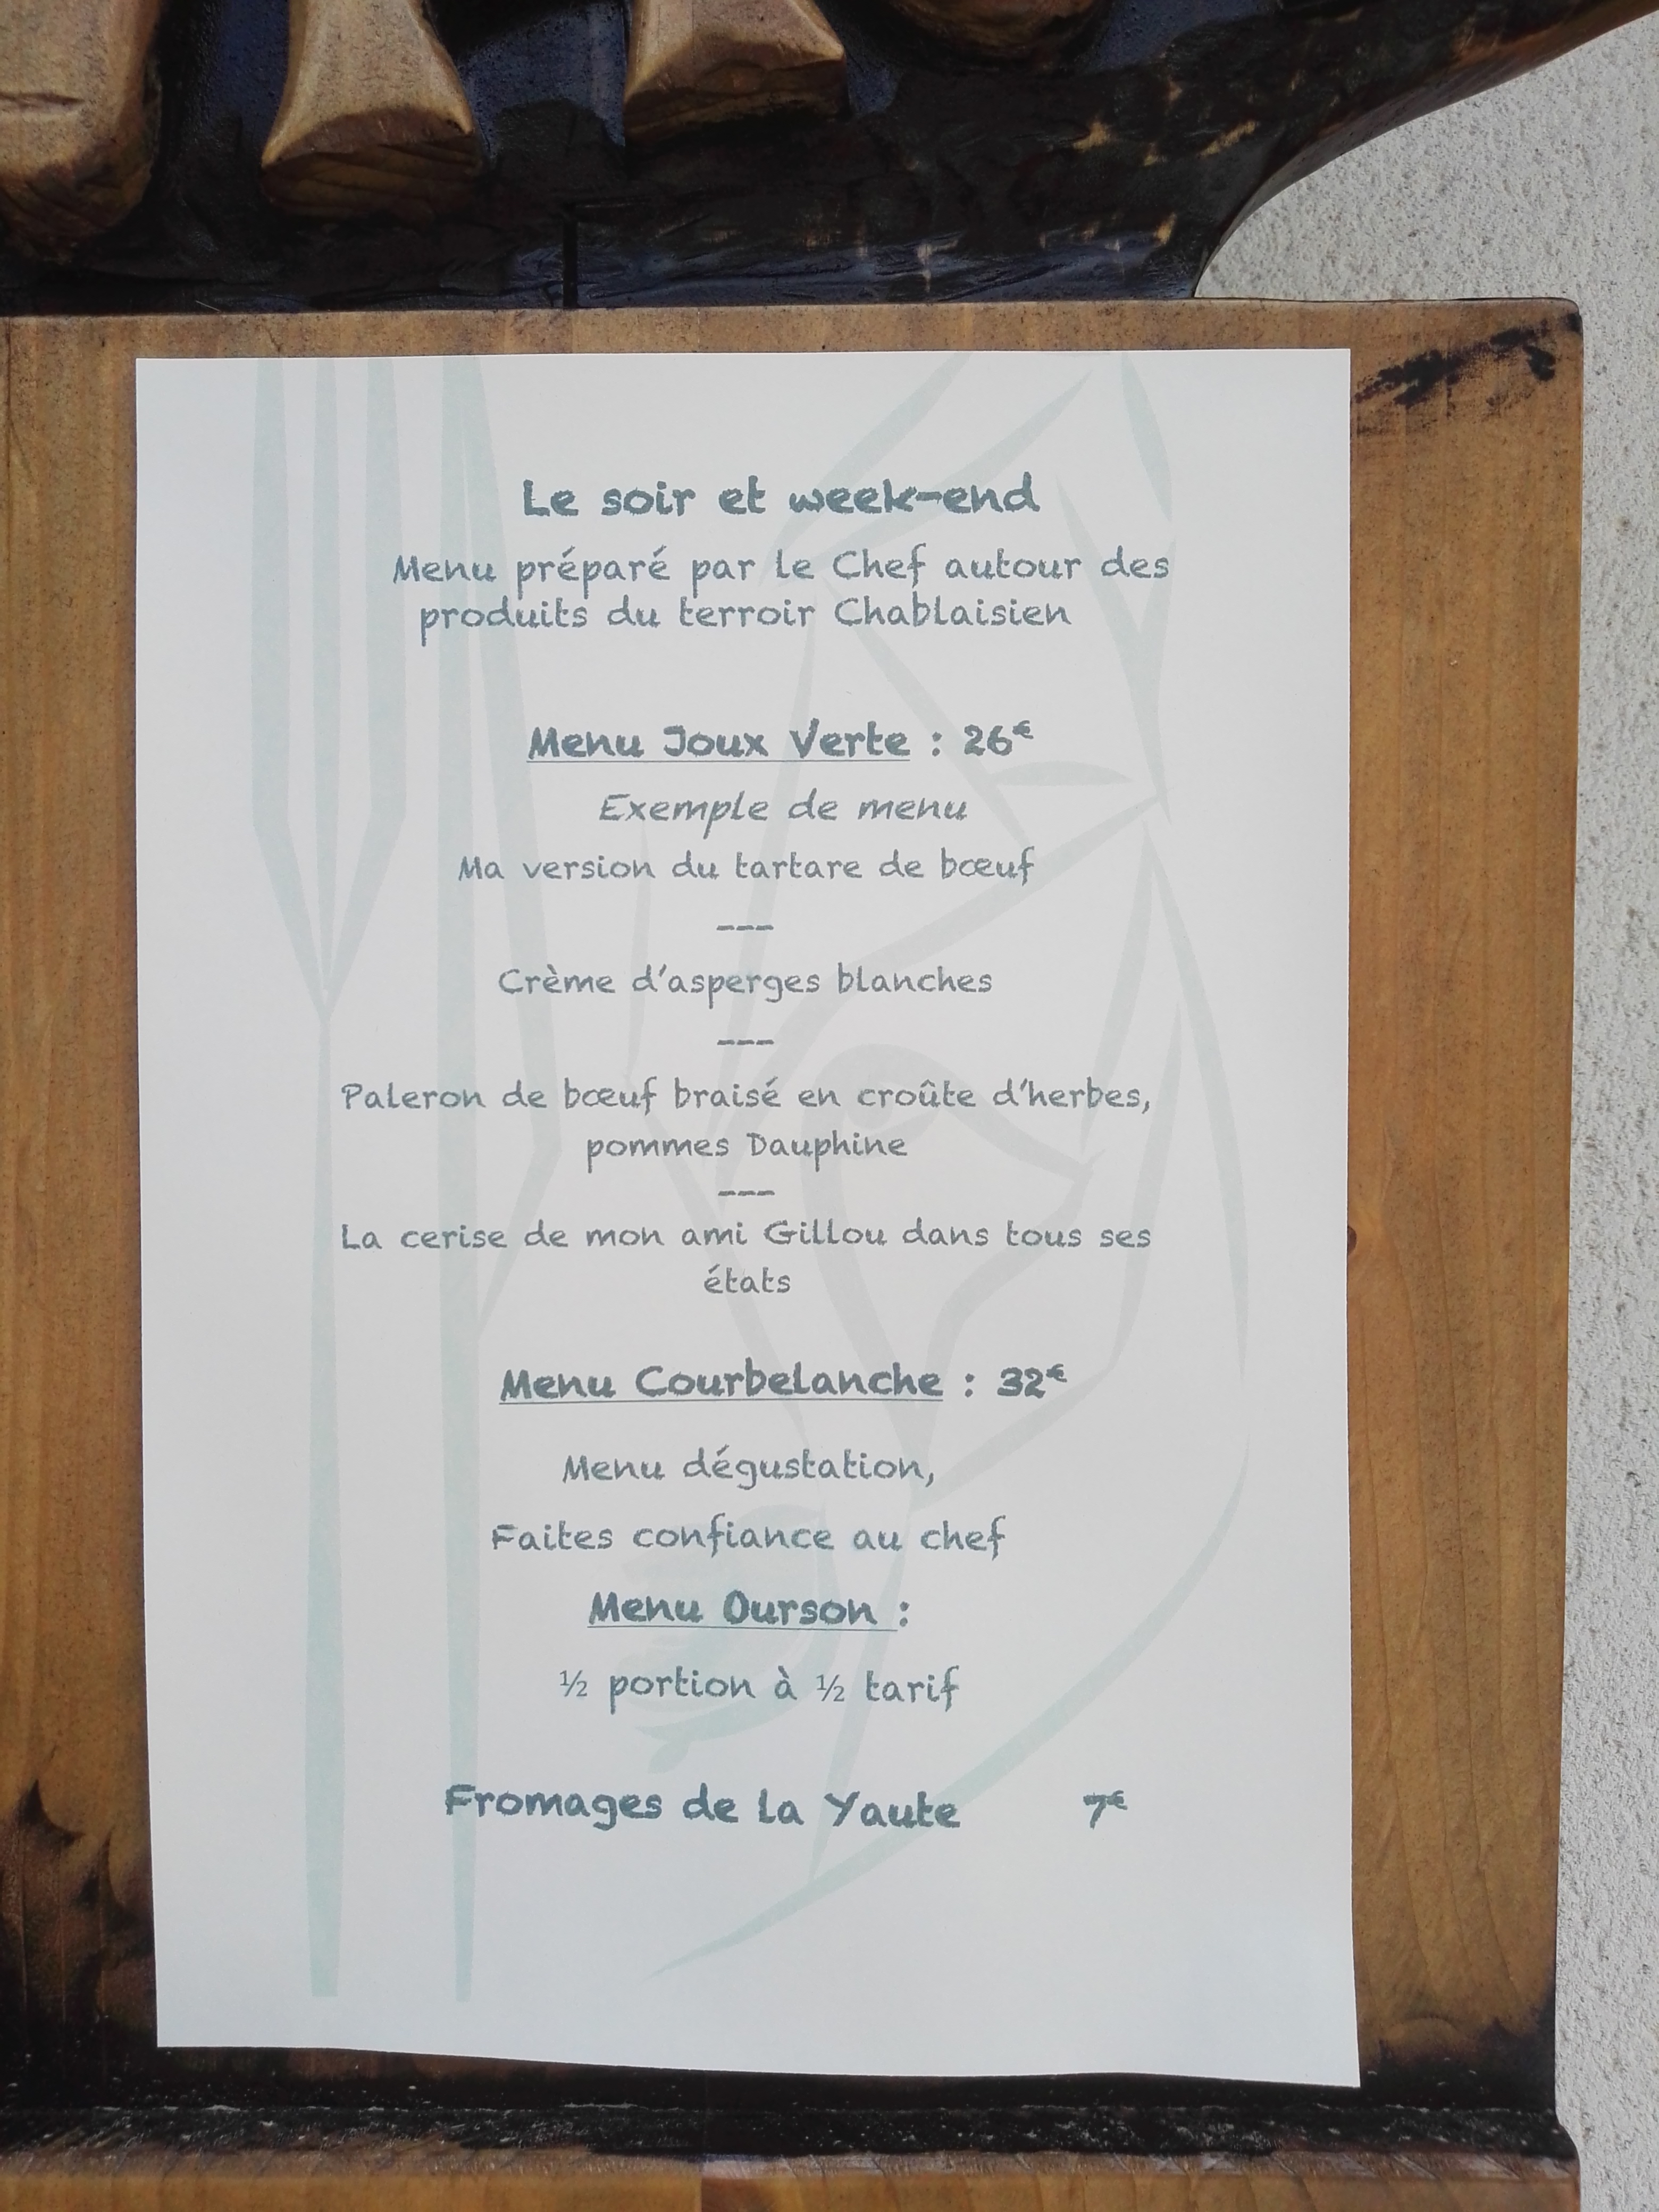 Le soir et week-end
Menu préparé par le Chef autour des
produits du terroir Chablaisien
Menu Joux Verte : 26€
Exemple de menu
Ma version du tartare de bœuf
---
Crème d'asperges blanches
---
Paleron de bœuf braisé en croûte d'herbes,
pommes Dauphine
---
La cerise de mon ami Gillou dans tous ses
états
Menu Courbelanche : 32€
Menu dégustation,
Faites confiance au chef
Menu Ourson :
½ portion à ½ tarif
Fromages de la Yaute 7€